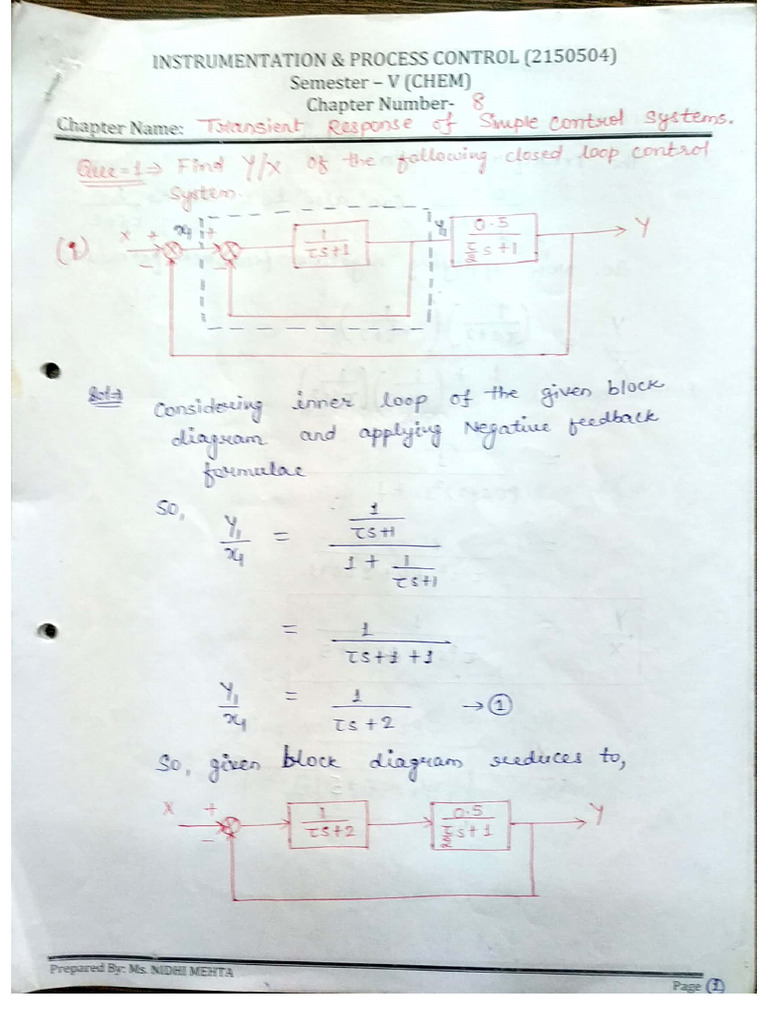 INSTRUMENTATION & PROCESS CONTROL (2150504)
Semester – V (CHEM)
Chapter Number- 8
Chapter Name: Transient Response of Simple control systems.
Que=1⇒ Find Y/X of the following closed loop control
system.
(1) X + − x₁ + − 1/(τs+1) Y₁ 0.5/(τ/2 s+1) Y
Sol→ Considering inner loop of the given block
diagram and applying Negative feedback
formulae
So, Y₁/x₁ = (1/(τs+1)) / (1 + 1/(τs+1))
= 1/(τs+1+1)
Y₁/x₁ = 1/(τs+2) → ①
So, given block diagram reduces to,
X + − 1/(τs+2) 0.5/(τ/2 s+1) Y
Prepared By: Ms. NIDHI MEHTA
Page (1)